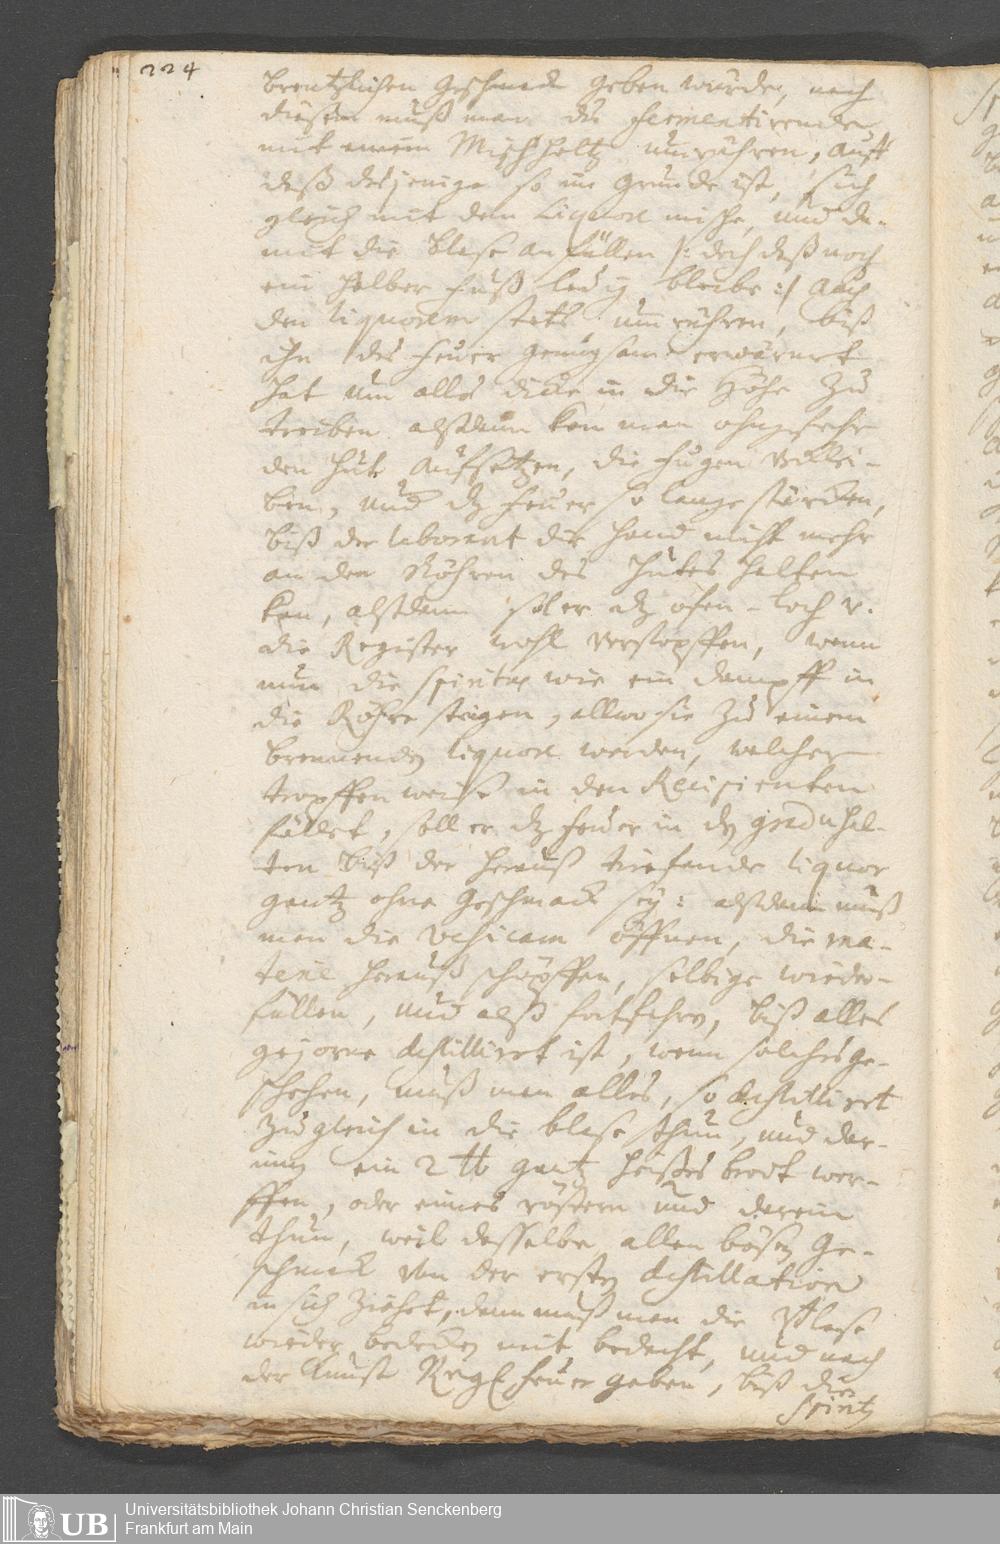 224
brentzlichen Geschmack geben würde, nach
diesem muß man die fermentirende
mit einem Mischholtz umrühren, auff
daß dasjenige so im Grunde ist, sich
gleich mit dem Liquore mische, und da-
mit die Blase anfüllen /: doch daß noch
ein halber Fuß ledig bleibe :/ auch
den liquorem stets umrühren, biß
ihn das Feuer genugsam erwärmt
hat um alles dicke in die Höhe zu
treiben alsdann kan man ohngefehr
den Hut aufsetzen, die Fugen verklei-
ben, und dz Feuer so lange stärcken,
biß der laborant die Hand nicht mehr
an den Röhren des Hutes halten
kan, alsdann sol er dz ofen-loch v.
die Register wohl verstopffen, wenn
nun die Spiritus wie ein Dampff in
die Röhre steigen, allwo sie zu einem
brennenden liquore werden, welcher
tropffen weise in den Recipienten
fället, soll er dz Feuer in dem gradu hal-
ten biß der herauß trieffende liquor
gantz ohne Geschmack sey: alsdann muß
man die Vesicam öffnen, die ma-
terie herauß schöpffen, selbige wieder
füllen, und alß fortfahren, biß alles
gejorne destilliret ist, wenn solches ge-
schehen, muß man alles, so destilliret
zugleich in die blase thun, und dar-
ein 2 ℔ gantz heißes brodt wer-
ffen, oder eines rösten und darein
thun, weil dasselbe allen bösen Ge-
schmack von der ersten destillation
in sich ziehet, dann muß man die Blase
wieder bedecken mit bedacht, und nach
der Kunst Regel Feuer geben, biß die
Spirit9
Universitätsbibliothek Johann Christian Senckenberg
UB
Frankfurt am Main